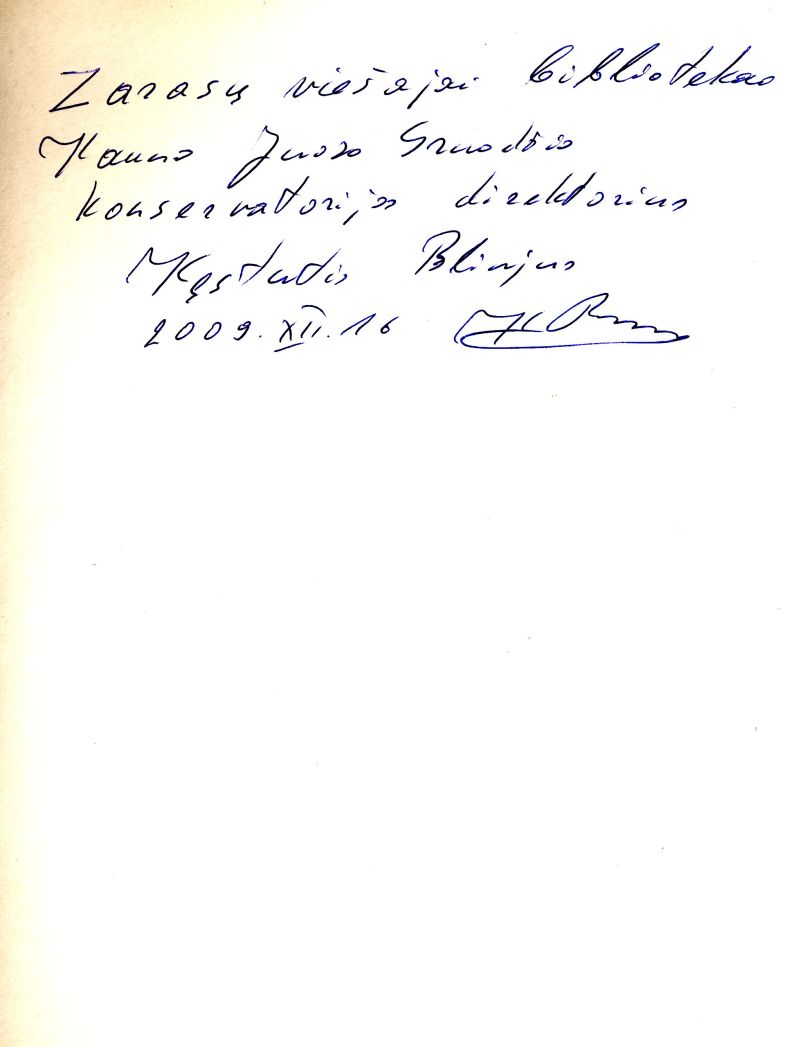 Zarasų viešajai bibliotekai
Kauno Juozo Gruodžio
konservatorijos direktorius
Kęstutis Bliujus
2009.XII.16